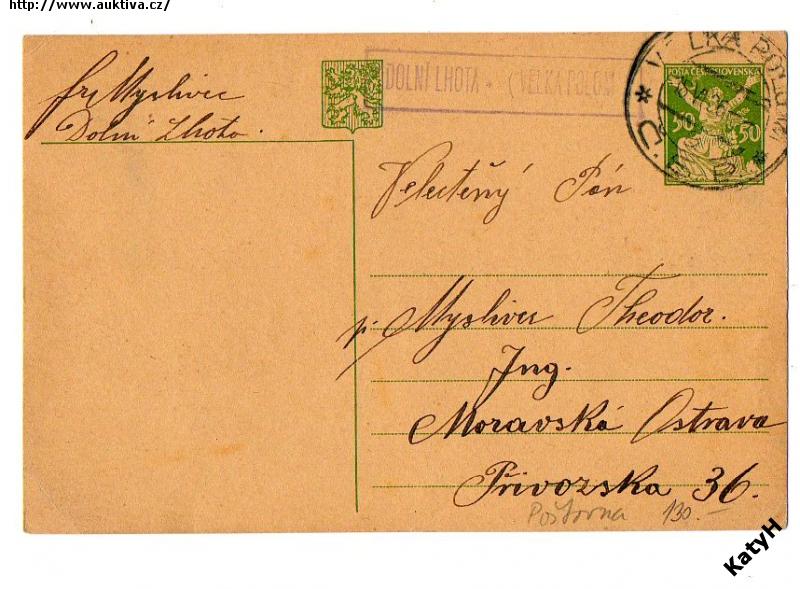 http://www.auktiva.cz/
frz Myslivec
Dolní Lhota.
DOLNÍ LHOTA * (VELKÁ POLOM
VELKÁ POLOM
POŠTA ČESKOSLOVENSKÁ
50 50
Velectěný Pán
p. Myslivec Theodor.
Ing.
Moravská Ostrava
Přivozska 36.
Poštovna 130.—
KatyH